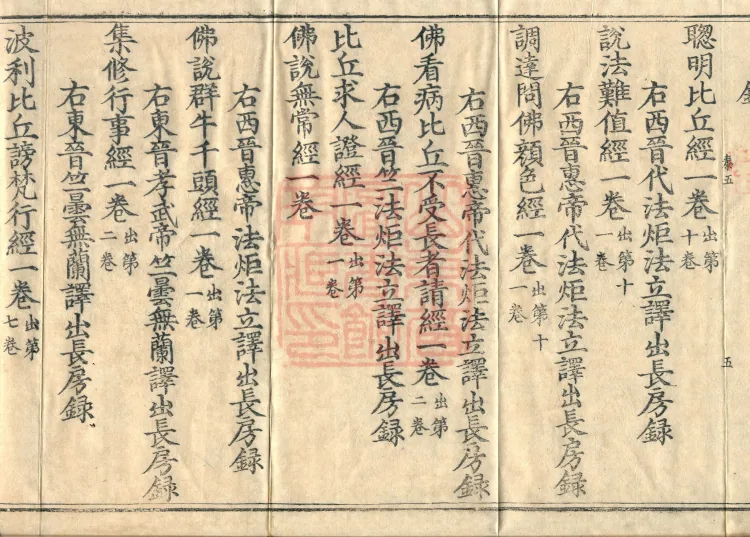 聦明比丘經一卷出第十卷
右西晉代法炬法立譯出長房録
說法難值經一卷出第十一卷
右西晉惠帝代法炬法立譯出長房録
調達問佛顏色經一卷出第十一卷
右西晉惠帝代法炬法立譯出長房録
佛看病比丘不受長者請經一卷出第二卷
右西晉竺法炬法立譯出長房録
比丘求人證經一卷出第一卷
佛說無常經一卷
右西晉惠帝法炬法立譯出長房録
佛說群牛千頭經一卷出第一卷
右東晉孝武帝竺曇無蘭譯出長房録
集修行事經一卷出第二卷
右東晉竺曇無蘭譯出長房録
波利比丘謗梵行經一卷出第七卷